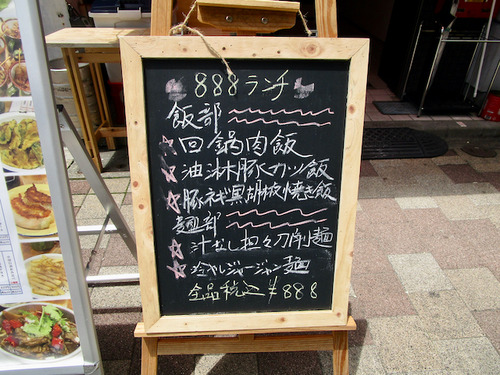 888ランチ
飯部
☆回鍋肉飯
☆油淋豚カツ飯
☆豚ネギ黒胡椒焼き飯
麺部
☆汁なし担々刀削麺
☆冷やしジャージャン麺
全品税込¥888